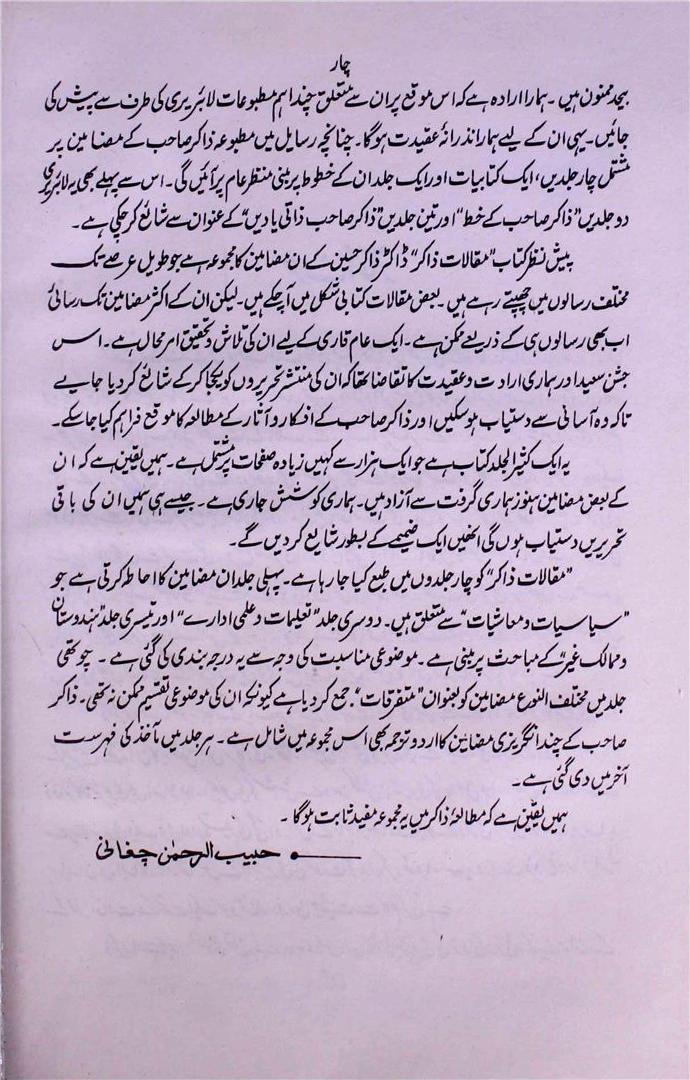 چار
بیحد ممنون ہیں۔ ہمارا ارادہ ہے کہ اس موقع پر ان سے متعلق چند اہم مطبوعات لائبریری کی طرف سے پیش کی
جائیں۔ یہی ان کے لیے ہمارا نذرانۂ عقیدت ہوگا۔ چنانچہ رسایل میں مطبوعہ ذاکر صاحب کے مضامین پر
مشتمل چار جلدیں، ایک کتابیات اور ایک جلد ان کے خطوط پر مبنی منظر عام پر آئیں گی۔ اس سے پہلے بھی یہ لائبریری
دو جلدیں "ذاکر صاحب کے خط" اور تین جلدیں "ذاکر صاحب ذاتی یادیں" کے عنوان سے شائع کر چکی ہے۔
پیش نظر کتاب "مقالات ذاکر" ڈاکٹر ذاکر حسین کے ان مضامین کا مجموعہ ہے جو طویل عرصے تک
مختلف رسالوں میں چھپتے رہے ہیں۔ بعض مقالات کتابی شکل میں آ چکے ہیں۔ لیکن ان کے اکثر مضامین تک رسائی
اب بھی رسالوں ہی کے ذریعے ممکن ہے۔ ایک عام قاری کے لیے ان کی تلاش و تحقیق امر محال ہے۔ اس
جشن سعید اور ہماری ارادت و عقیدت کا تقاضا تھا کہ ان کی منتشر تحریروں کو یکجا کر کے شائع کر دیا جایے
تاکہ وہ آسانی سے دستیاب ہو سکیں اور ذاکر صاحب کے افکار و آثار کے مطالعہ کا موقع فراہم کیا جا سکے۔
یہ ایک کثیر الجلد کتاب ہے جو ایک ہزار سے کہیں زیادہ صفحات پر مشتمل ہے۔ ہمیں یقین ہے کہ ان
کے بعض مضامین ہنوز ہماری گرفت سے آزاد ہیں۔ ہماری کوشش جاری ہے۔ جیسے ہی ہمیں ان کی باقی
تحریریں دستیاب ہوں گی انھیں ایک ضمیمے کے بطور شایع کر دیں گے۔
"مقالات ذاکر" کو چار جلدوں میں طبع کیا جا رہا ہے۔ پہلی جلد ان مضامین کا احاطہ کرتی ہے جو
"سیاسیات و معاشیات" سے متعلق ہیں۔ دوسری جلد "تعلیمات و علمی ادارے" اور تیسری جلد "ہندوستان
و ممالک غیر" کے مباحث پر مبنی ہے۔ موضوعی مناسبت کی وجہ سے یہ درجہ بندی کی گئی ہے۔ چوتھی
جلد میں مختلف النوع مضامین کو بعنوان "متفرقات" جمع کر دیا ہے کیونکہ ان کی موضوعی تقسیم ممکن نہ تھی۔ ذاکر
صاحب کے چند انگریزی مضامین کا اردو ترجمہ بھی اس مجموعہ میں شامل ہے۔ ہر جلد میں مآخذ کی فہرست
آخر میں دی گئی ہے۔
ہمیں یقین ہے کہ مطالعۂ ذاکر میں یہ مجموعہ مفید ثابت ہوگا۔
حبیب الرحمٰن چغانی